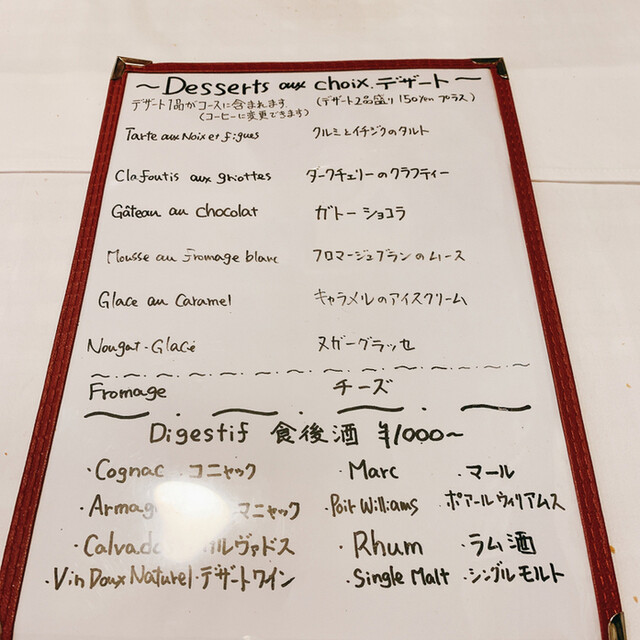 ～Desserts aux choix.デザート～
デザート1品がコースに含まれます (デザート2品盛り 150yen プラス)
(コーヒーに変更できます)
Tarte aux Noix et figues クルミとイチジクのタルト
Clafoutis aux griottes ダークチェリーのクラフティー
Gâteau au chocolat ガトー ショコラ
Mousse au Fromage blanc フロマージュブランのムース
Glace au Caramel キャラメルのアイスクリーム
Nougat-Glacé ヌガーグラッセ
Fromage チーズ
Digestif 食後酒 ¥1000～
・Cognac ・コニャック ・Marc ・マール
・Armag マニャック ・Poir Williams ・ポアールウィリアムス
・Calvado ルヴァドス ・Rhum ・ラム酒
・Vin Doux Naturel・デザートワイン ・Single Malt ・シングルモルト